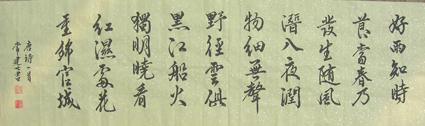 好雨知時
節當春乃
發生隨風
潛入夜潤
物細無聲
野徑雲俱
黑江船火
獨明曉看
紅濕處花
重錦官城
唐詩一首